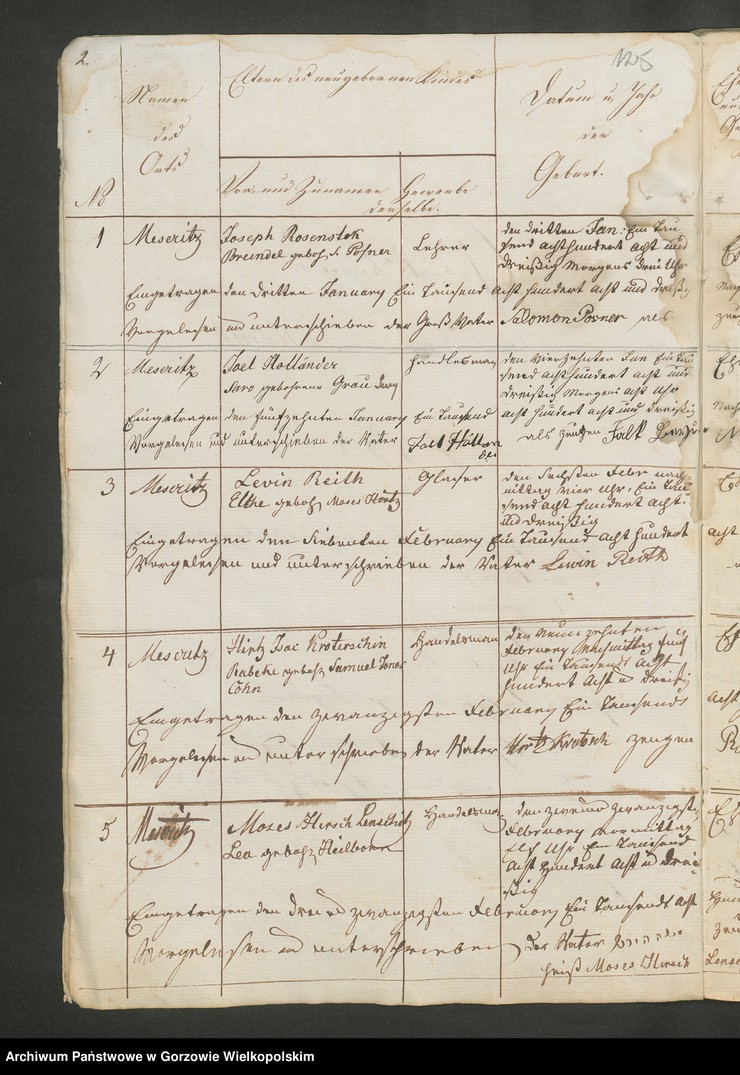 2.
125
Namen
des
Orts
Eltern des neugebornen Kindes
Datum u. Jahr
der
Geburt.
No
Vor- und Zunamen
Gewerbe
derselbe.
1
Meseritz
Joseph Rosenstok
Breindel geboh.
Posner
Lehrer
den dritten Jan: Ein Tau
send achthundert acht und
dreißig Morgens drei Uhr
Eingetragen den dritten January Ein Tausend acht hundert acht und dreißig
Vorgelesen und unterschrieben der Groß Vater Salomon Posner als
2
Meseritz
Joel Holländer
Sara gebohrene Grau
Handlesman
den vierzehnten Jan Ein Tau
send achthundert acht und
dreißig Morgens acht Uhr
Eingetragen den fünfzehnten January Ein Tausend acht hundert acht und dreißig
Vorgelesen und unterschrieben der Vater
als Zeugen Falk
3
Meseritz
Levin Reith
Elke geboh Moses Hirtz
Glaser
den sechsten Febr nach
mittag vier Uhr, Ein Tau
send acht hundert acht
und dreißig
Eingetragen den siebenten February Ein Tausend acht hundert
Vorgelesen und unterschrieben der Vater Lewin Reith
4
Meseritz
Hirtz Isac Krotoschin
Rabeke geboh Samuel Jonas
Cohn
Handelsman
den Neunzehnten
February Nachmittag fünf
Uhr Ein Tausend acht
hundert acht u dreißig
Eingetragen den zwanzigsten February Ein Tausend
Vorgelesen und unterschrieben der Vater
Zeugen
5
Meseritz
Moses Hirsch
Lea geboh Heilborn
Handelsman
den zwei und zwanzigste
February vormittag
Uhr Ein Tausend
acht hundert acht u drei
ßig
Eingetragen den drei und zwanzigsten February Ein Tausend acht
Vorgelesen und unterschrieben der Vater
heißt Moses Hirsch
Archiwum Państwowe w Gorzowie Wielkopolskim